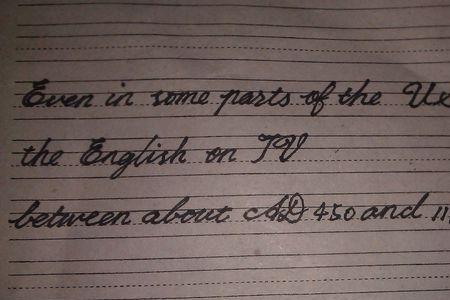 Even in some parts of the
the English on TV
between about AD 450 and